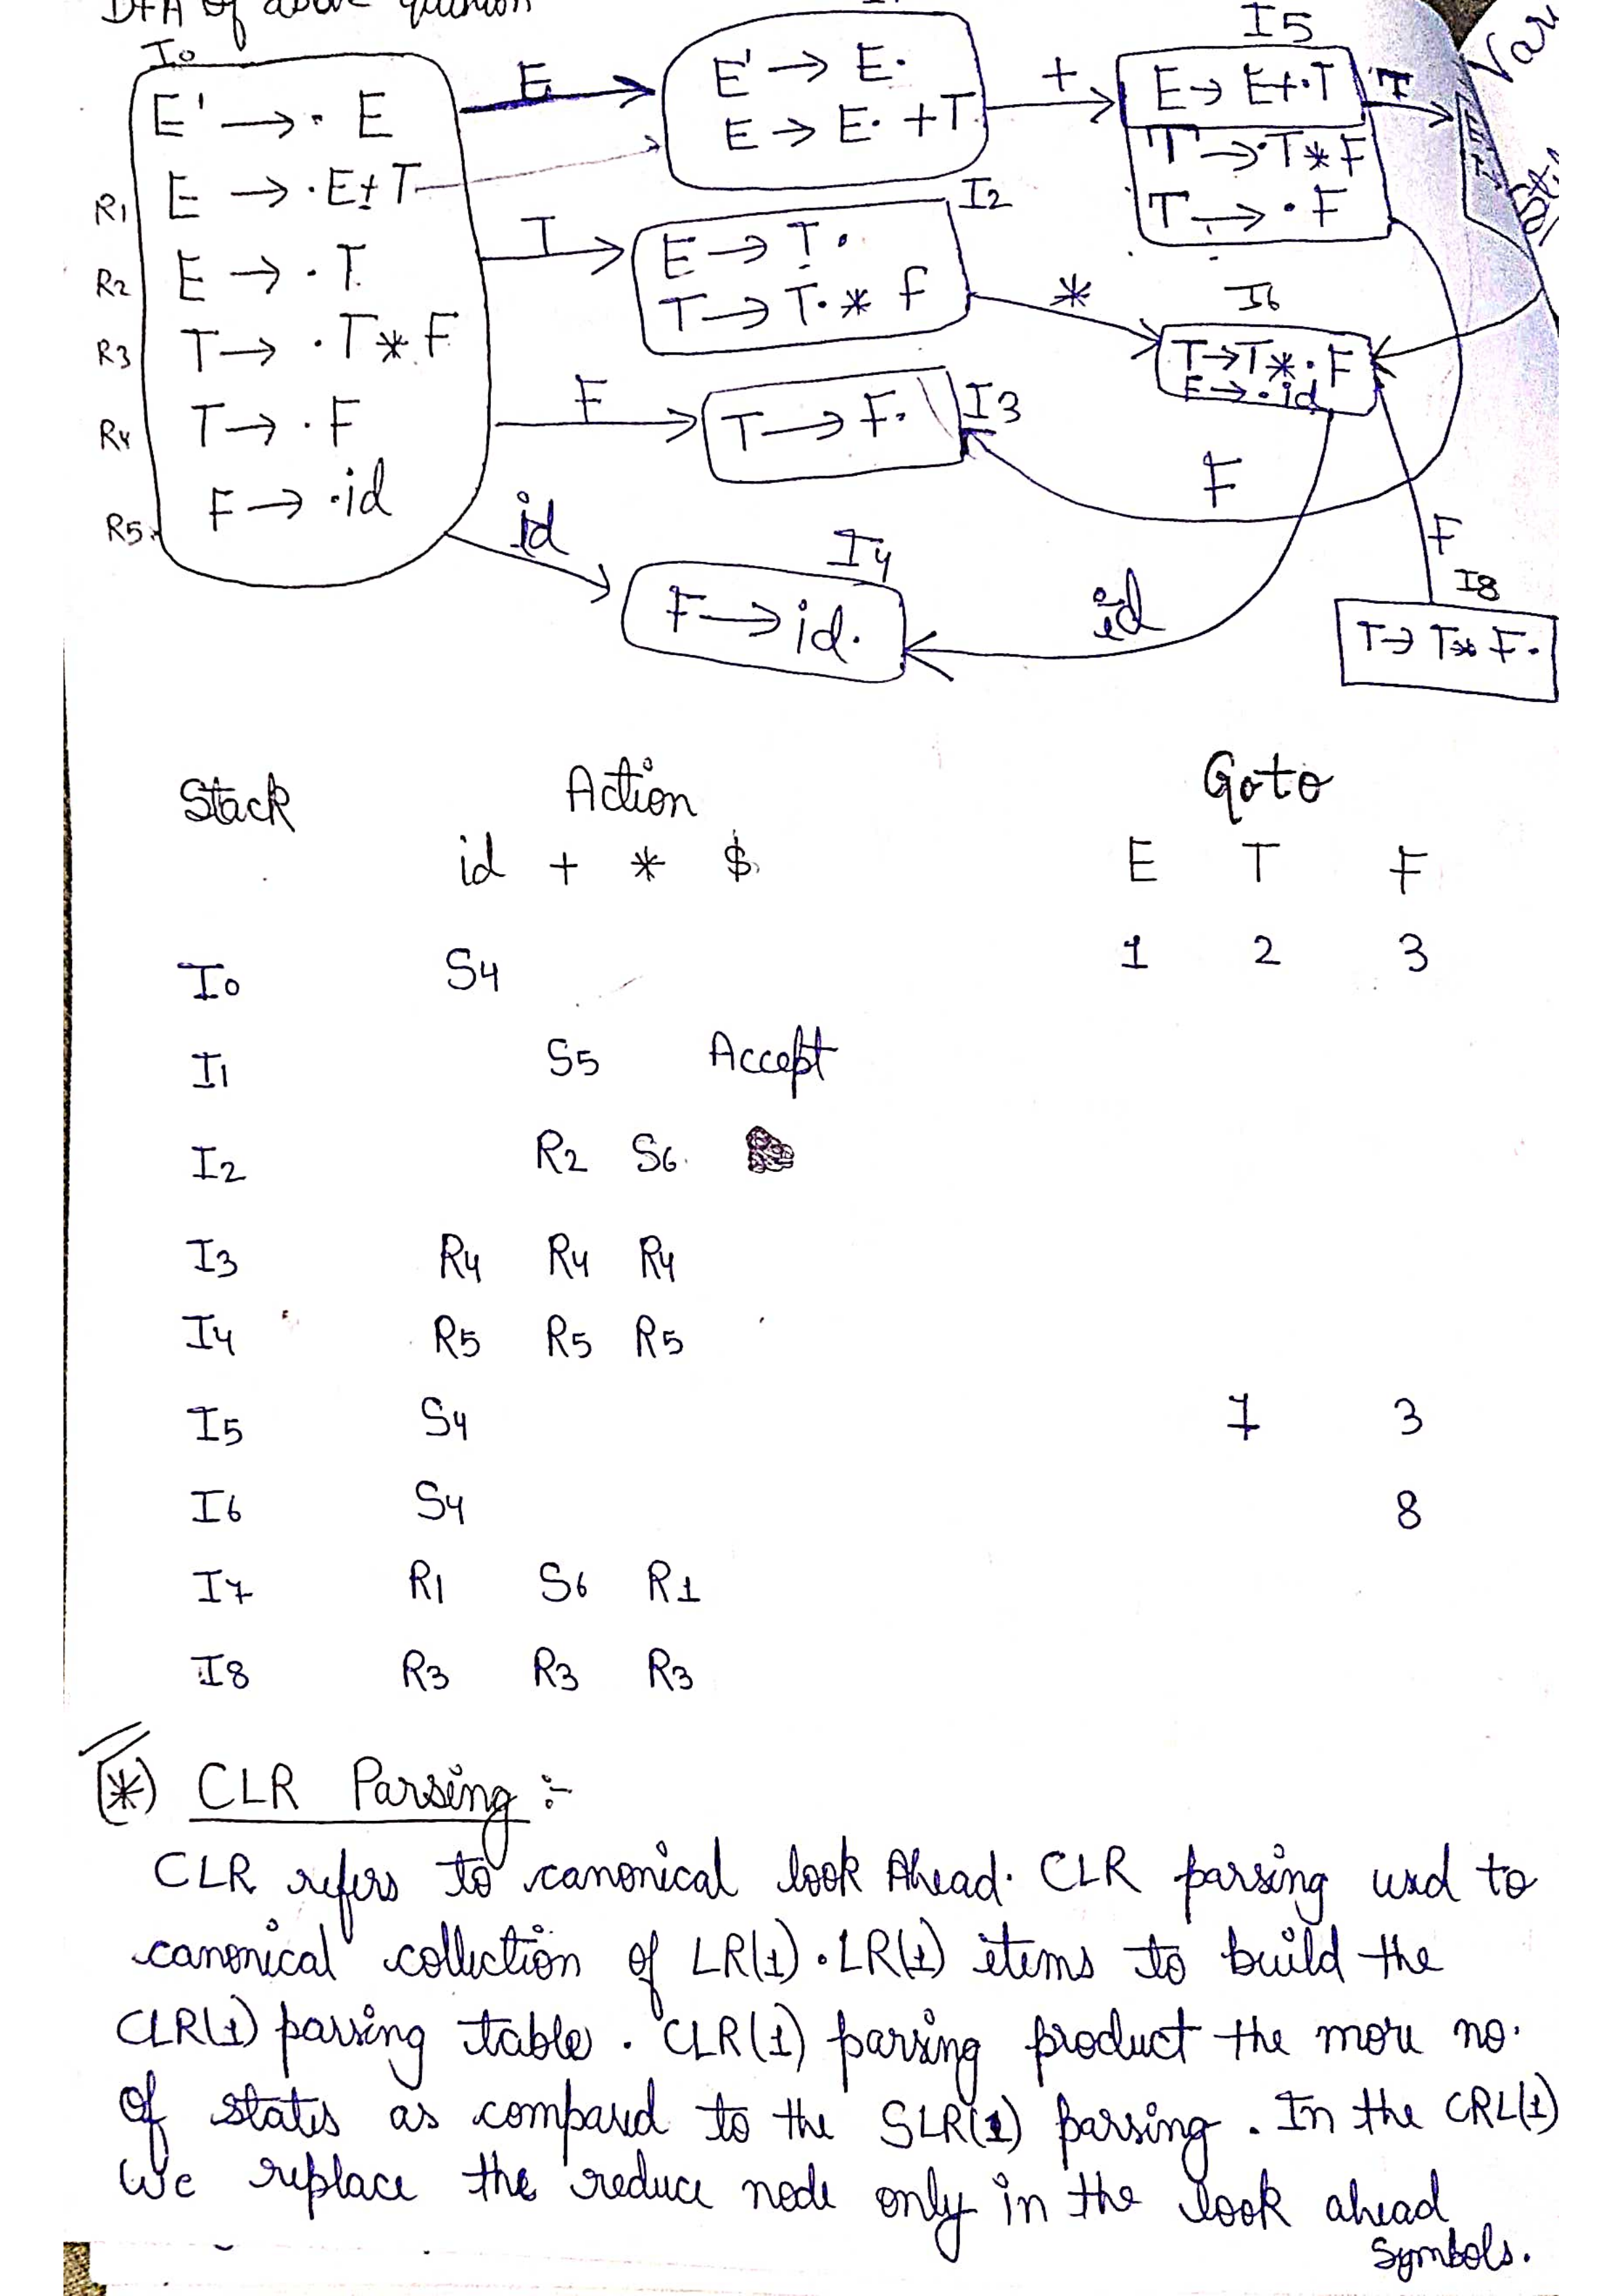 DFA of above question
I0
E' → · E
R1 E → · E + T
R2 E → · T
R3 T → · T * F
R4 T → · F
R5 F → · id
E
E' → E ·
E → E · + T
+
I5
E → E + · T
T → · T * F
T → · F
T
Var
T
I2
E → T ·
T → T · * F
*
I6
T → T * · F
E → · id
F
T → F ·
I3
F
id
I4
F → id ·
id
F
I8
T → T * F ·
Stack Action Goto
id + * $ E T F
I0 S4 1 2 3
I1 S5 Accept
I2 R2 S6
I3 R4 R4 R4
I4 R5 R5 R5
I5 S4 7 3
I6 S4 8
I7 R1 S6 R1
I8 R3 R3 R3
(*) CLR Parsing :-
CLR refers to canonical look Ahead. CLR parsing used to
canonical collection of LR(1). LR(1) items to build the
CLR(1) parsing table. CLR(1) parsing product the more no.
of states as compared to the SLR(1) parsing. In the CRL(1)
We replace the reduce node only in the look ahead
symbols.